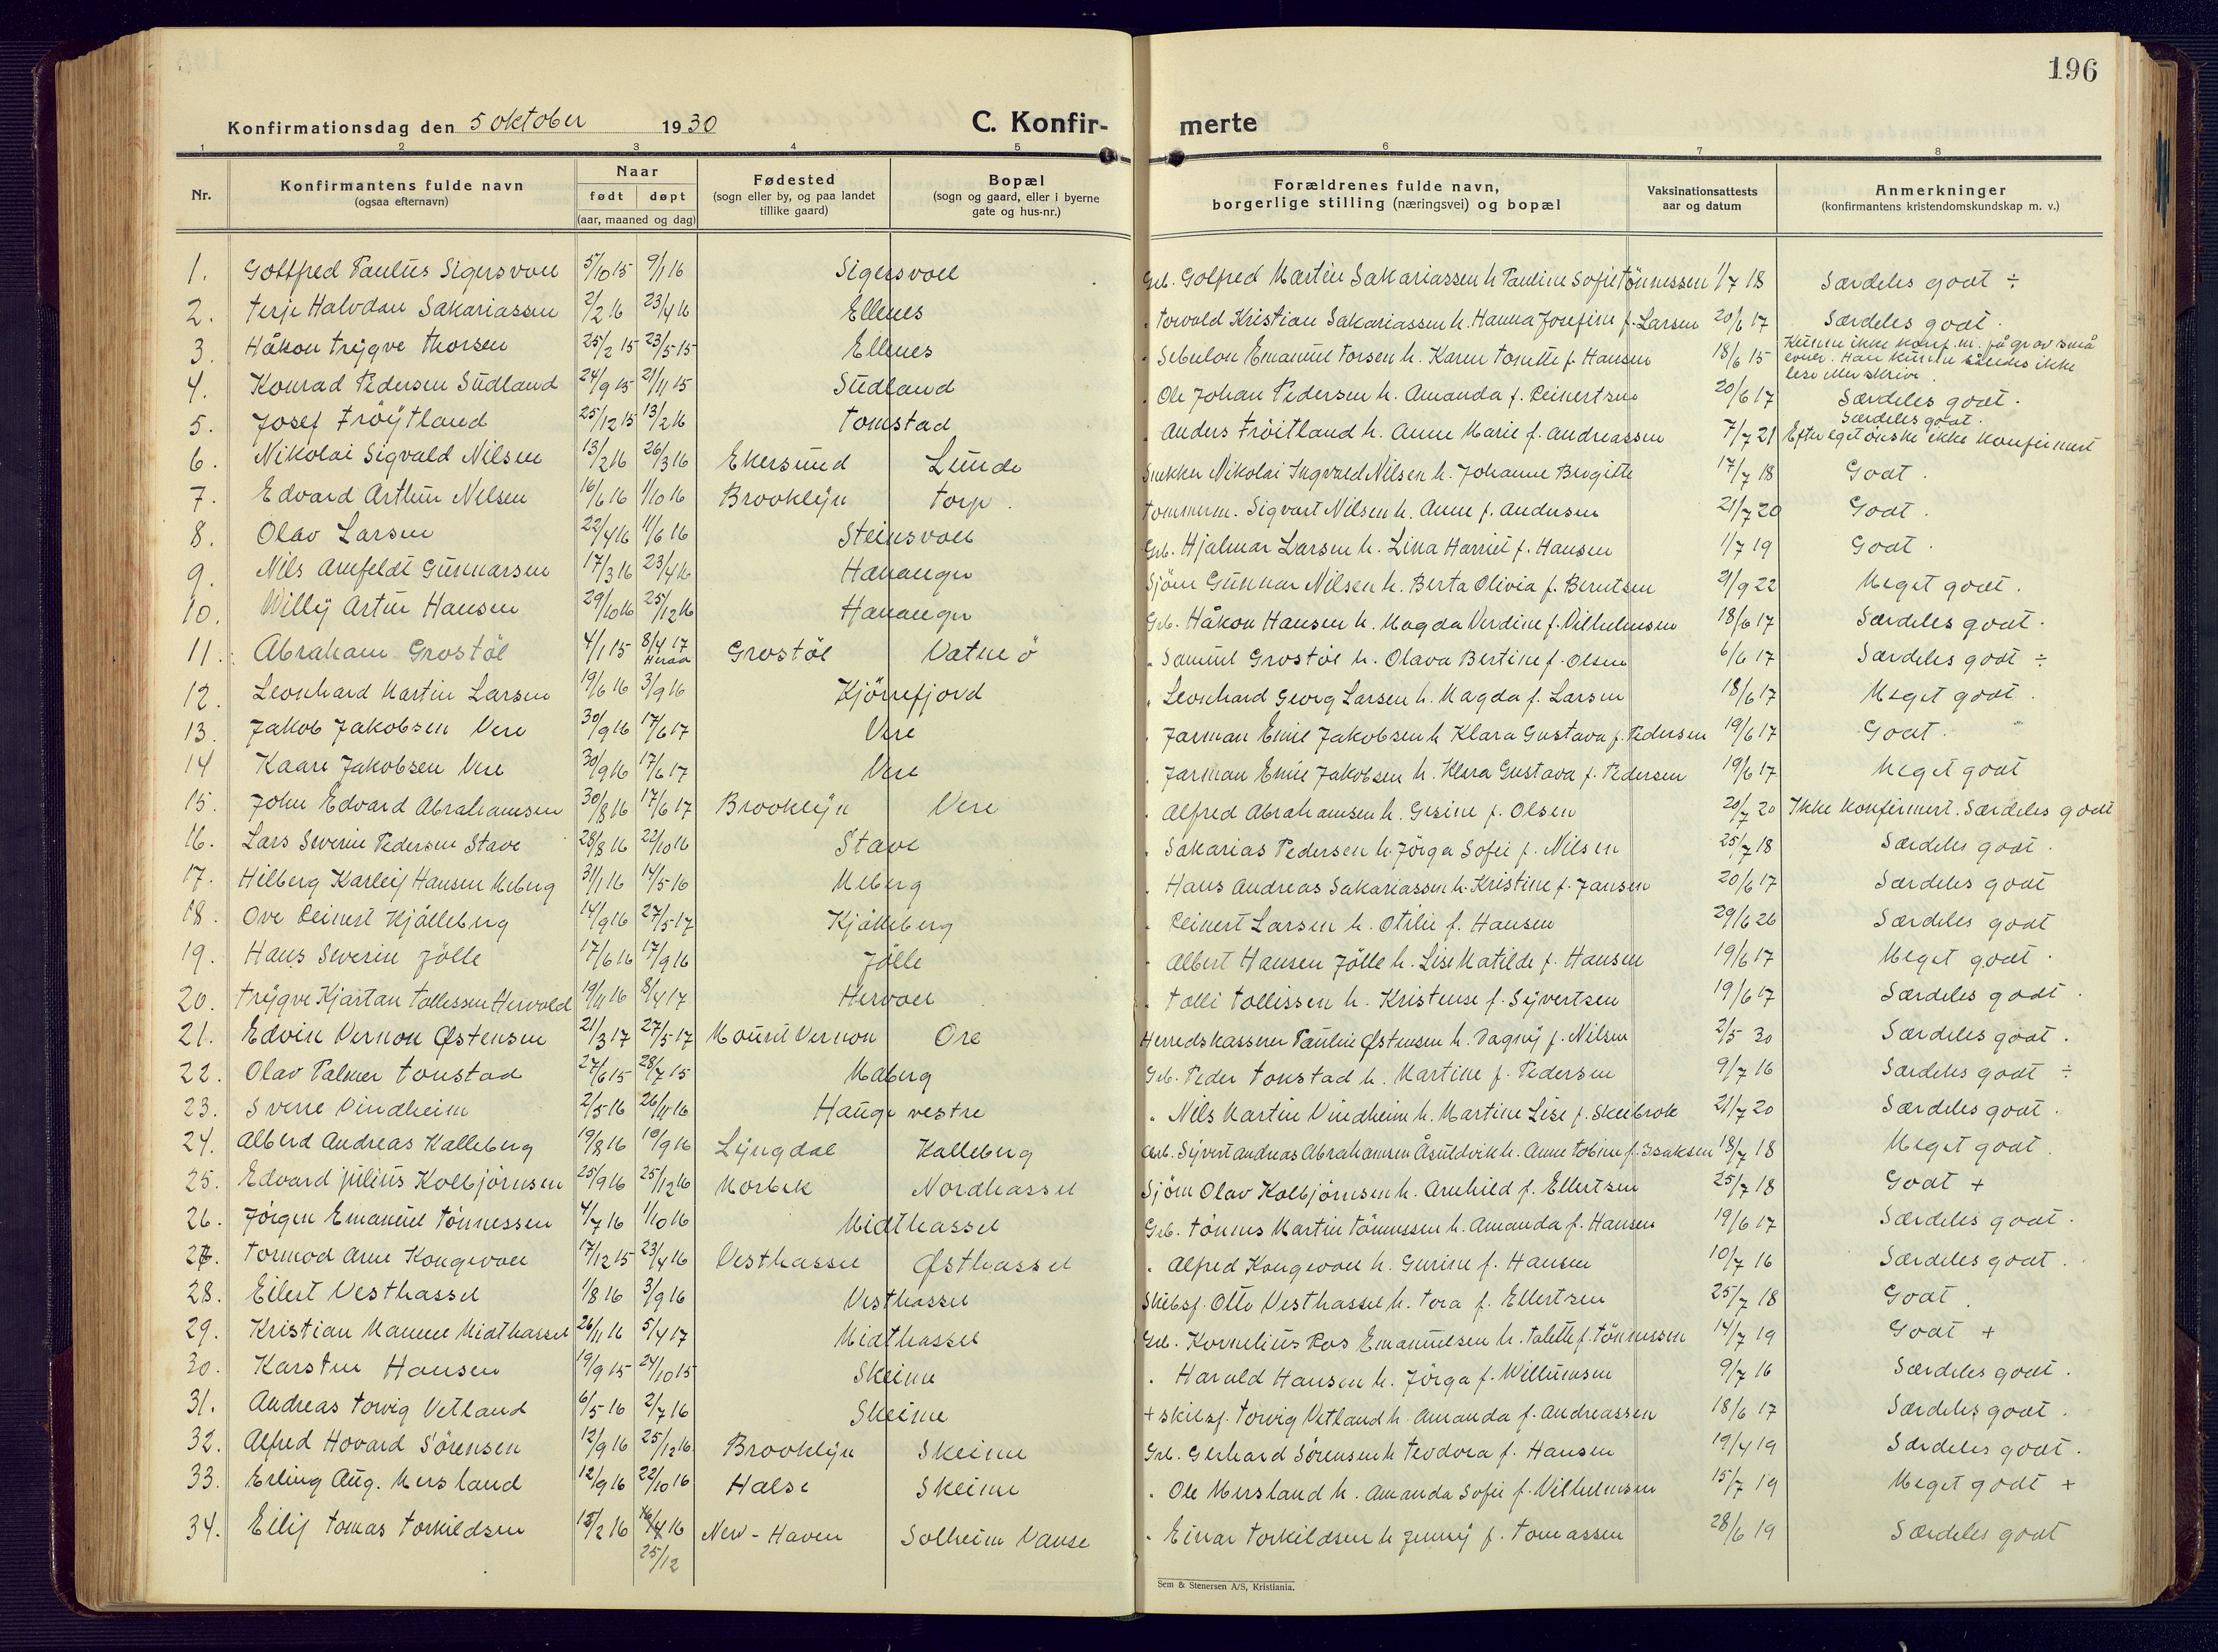 196
Konfirmationsdag den 5 oktober 1930 C. Konfir- merte
1 2 3 4 5 6 7 8
Nr. Konfirmantens fulde navn (ogsaa efternavn) Naar født døpt (aar, maaned og dag) Fødested (sogn eller by, og paa landet tillike gaard) Bopæl (sogn og gaard, eller i byerne gate og hus-nr.) Forældrenes fulde navn, borgerlige stilling (næringsvei) og bopæl Vaksinationsattests aar og datum Anmerkninger (konfirmantens kristendomskundskap m. v.)
1. Gottfred Paulus Sigersvoll 5/10 15 9/1 16 Sigersvoll Grb. Golfred Martin Sakariassen h Pauline Sofie Tönnessen 1/7 18 Særdeles godt ÷
2. Terje Halvdan Sakariassen 2/2 16 23/4 16 Ellenes " Torvald Kristian Sakariassen h. Hanna Josefine f. Larsen 20/6 17 Særdeles godt.
3. Håkon Trygve Thorsen 25/2 15 23/5 15 Ellenes " Sebulon Emanuel Torsen h. Karen Tonette f. Hansen 18/6 15 Kunne ikke konf. m. på grav små evner. Han kunne således ikke lese eller skrive.
4. Konrad Pedersen Sudland 24/9 15 21/11 15 Sudland " Ole Johan Pedersen h. Amanda f. Reinertsen 20/6 17 Særdeles godt.
5. Josef Fröytland 25/12 15 13/2 16 Tomstad " Anders Fröitland h. Anne Marie f. Andreassen 7/7 21 Særdeles godt. Efter eget önske ikke konfirmert
6. Nikolai Sigvald Nilsen 13/2 16 26/3 16 Ekersund Lunde Snekker Nikolai Ingvald Nilsen h. Johanne Birgitte 17/7 18 Godt.
7. Edvard Arthur Nilsen 16/6 16 1/10 16 Brooklyn Torp. Tømmerm. Sigvart Nilsen h. Anne f. Andersen 21/7 20 Godt.
8. Olav Larsen 22/4 16 11/6 16 Steinsvoll Grb. Hjalmar Larsen h. Lina Harriet f. Hansen 1/7 19 Godt.
9. Nils Arnfeldt Gunnarsen 17/3 16 23/4 16 Hananger Sjöm Gunnar Nilsen h. Berta Olivia f. Berntsen 21/9 22 Meget godt.
10. Willy Artur Hansen 29/10 16 25/12 16 Hananger Grb. Håkon Hansen h. Magda Verdine f. Vilhelmsen 18/6 17 Særdeles godt.
11. Abraham Grostöl 4/1 15 8/4 17 Heraa Grostöl Vatne ö " Samuel Grostöl h. Olava Bertine f. Olsen 6/6 17 Særdeles godt ÷
12. Leonhard Martin Larsen 19/6 16 3/9 16 Kjörrefjord " Leonhard Georg Larsen h. Magda f. Larsen 18/6 17 Meget godt.
13. Jakob Jakobsen Vere 30/9 16 17/6 17 Vere " Jarman Emil Jakobsen h Klara Gustava f. Pedersen 19/6 17 Godt.
14 Kaare Jakobsen Vere 30/9 16 17/6 17 Vere " Jarman Emil Jakobsen h. Klara Gustava f. Pedersen 19/6 17 Meget godt
15. John Edvard Abrahamsen 30/8 16 17/6 17 Brooklyn Vere " Alfred Abrahamsen h. Gesine f. Olsen 20/7 20 Ikke konfirmert. Særdeles godt
16. Lars Severin Pedersen Stave 28/8 16 22/10 16 Stave " Sakarias Pedersen h. Jörga Sofie f. Nilsen 25/7 18 Særdeles godt.
17. Hilberg Karleif Hansen Meberg 31/1 16 14/5 16 Meberg " Hans Andreas Sakariassen h. Kristine f. Jansen 20/6 17 Særdeles godt
18. Ove Reinert Kjålleberg 14/9 16 27/5 17 Kjålleberg " Reinert Larsen h. Otilie f. Hansen 29/6 26 Særdeles godt
19. Hans Severin Jölle 17/6 16 17/9 16 Jölle " Albert Hansen Jölle h. Lise Matilde f. Hansen 19/6 17 Meget godt.
20. Trygve Kjartan Tollessen Hervold 19/11 16 8/4 17 Hervoll " Tolli Tollissen h. Kristense f. Syvertsen 19/6 17 Særdeles godt.
21. Edvin Vernon Østensen 21/3 17 27/5 17 Mount Vernon Ore Herredskasserer Pauline Østensen h. Dagny f. Nilsen 2/5 30 Særdeles godt.
22. Olav Palmer Tonstad 27/6 15 28/7 15 Maberg Grb. Peder Tonstad h. Martine f. Pedersen 9/7 16 Særdeles godt ÷
23. Sverre Vindheim 2/5 16 26/11 16 Hauge vestre " Nils Martin Vindheim h. Martine Lise f. Skeibrok 21/7 20 Særdeles godt.
24. Alberd Andreas Kalleberg 19/8 16 10/9 16 Lyngdal Kalleberg Arb. Syvert Andreas Abrahamsen Åsuldvik h. Anne Tobine f. Isaksen 18/7 18 Meget godt.
25. Edvard Julius Kolbjörnsen 25/9 16 25/12 16 Morbek Nordhassel Sjöm Olav Kolbjörnsen h. Arnhild f. Ellertsen 25/7 18 Godt +
26. Jörgen Emanuel Tönnessen 4/7 16 1/10 16 Midthassel Grb. Tönnes Martin Tönnessen h. Amanda f. Hansen 19/6 17 Særdeles godt.
27. Tormod Arne Kongevoll 17/12 15 23/4 16 Vesthassel Østhassel " Alfred Kongevoll h. Gurine f. Hansen 10/7 16 Særdeles godt.
28. Eilert Vesthassel 1/8 16 3/9 16 Vesthassel Skibsf. Otto Vesthassel h. Tora f. Ellertsen 25/7 18 Godt.
29. Kristian Manne Midthassel 26/11 16 5/4 17 Midthassel Grb. Kornelius Ros Emanuelsen h. Talette f. Tönnessen 14/7 19 Godt +
30. Karsten Hansen 19/9 15 24/10 15 Skeime " Harald Hansen h. Jörga f. Willumsen 9/7 16 Særdeles godt.
31. Andreas Torvig Vetland 6/5 16 2/7 16 Skeime + skibsf. Torvig Vetland h. Amanda f. Andreassen 18/6 17 Særdeles godt.
32. Alfred Hovard Sörensen 12/9 16 25/12 16 Brooklyn Skeime Grb. Gerhard Sörensen h Teodora f. Hansen 19/4 19 Særdeles godt.
33. Erling Aug. Mersland 12/9 16 22/10 16 Halse Skeime " Ole Mersland h. Amanda Sofie f. Vilhelmsen 15/7 19 Meget godt +
34. Eilif Tomas Torkildsen 15/2 16 16/4 16 25/12 New-Haven Solheim Vanse " Einar Torkildsen h Jenny f. Tomassen 28/6 19 Særdeles godt
Sem & Stenersen A/S, Kristiania.